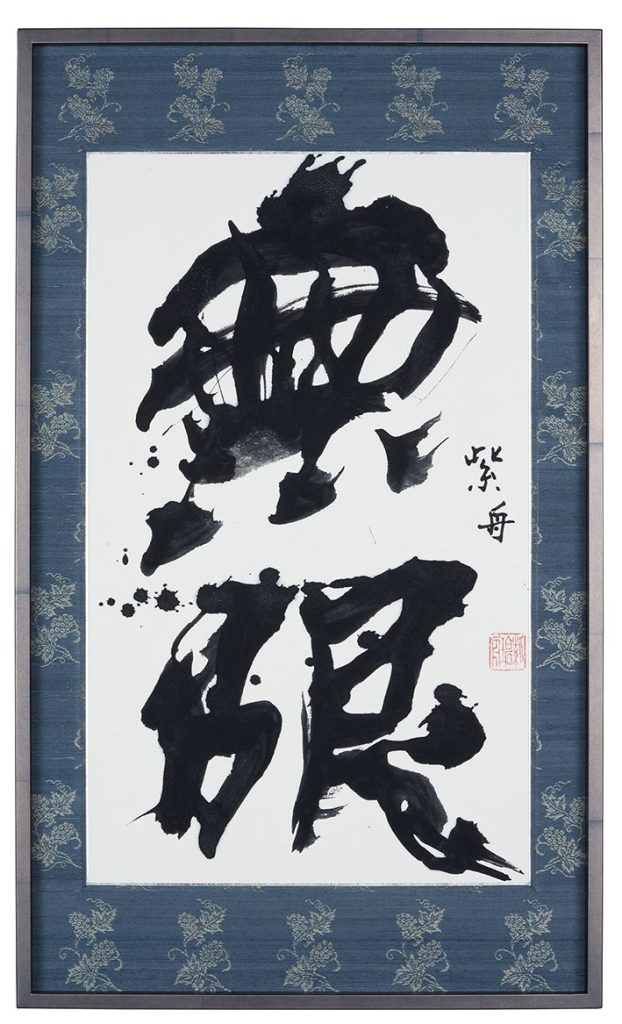 無限
紫舟